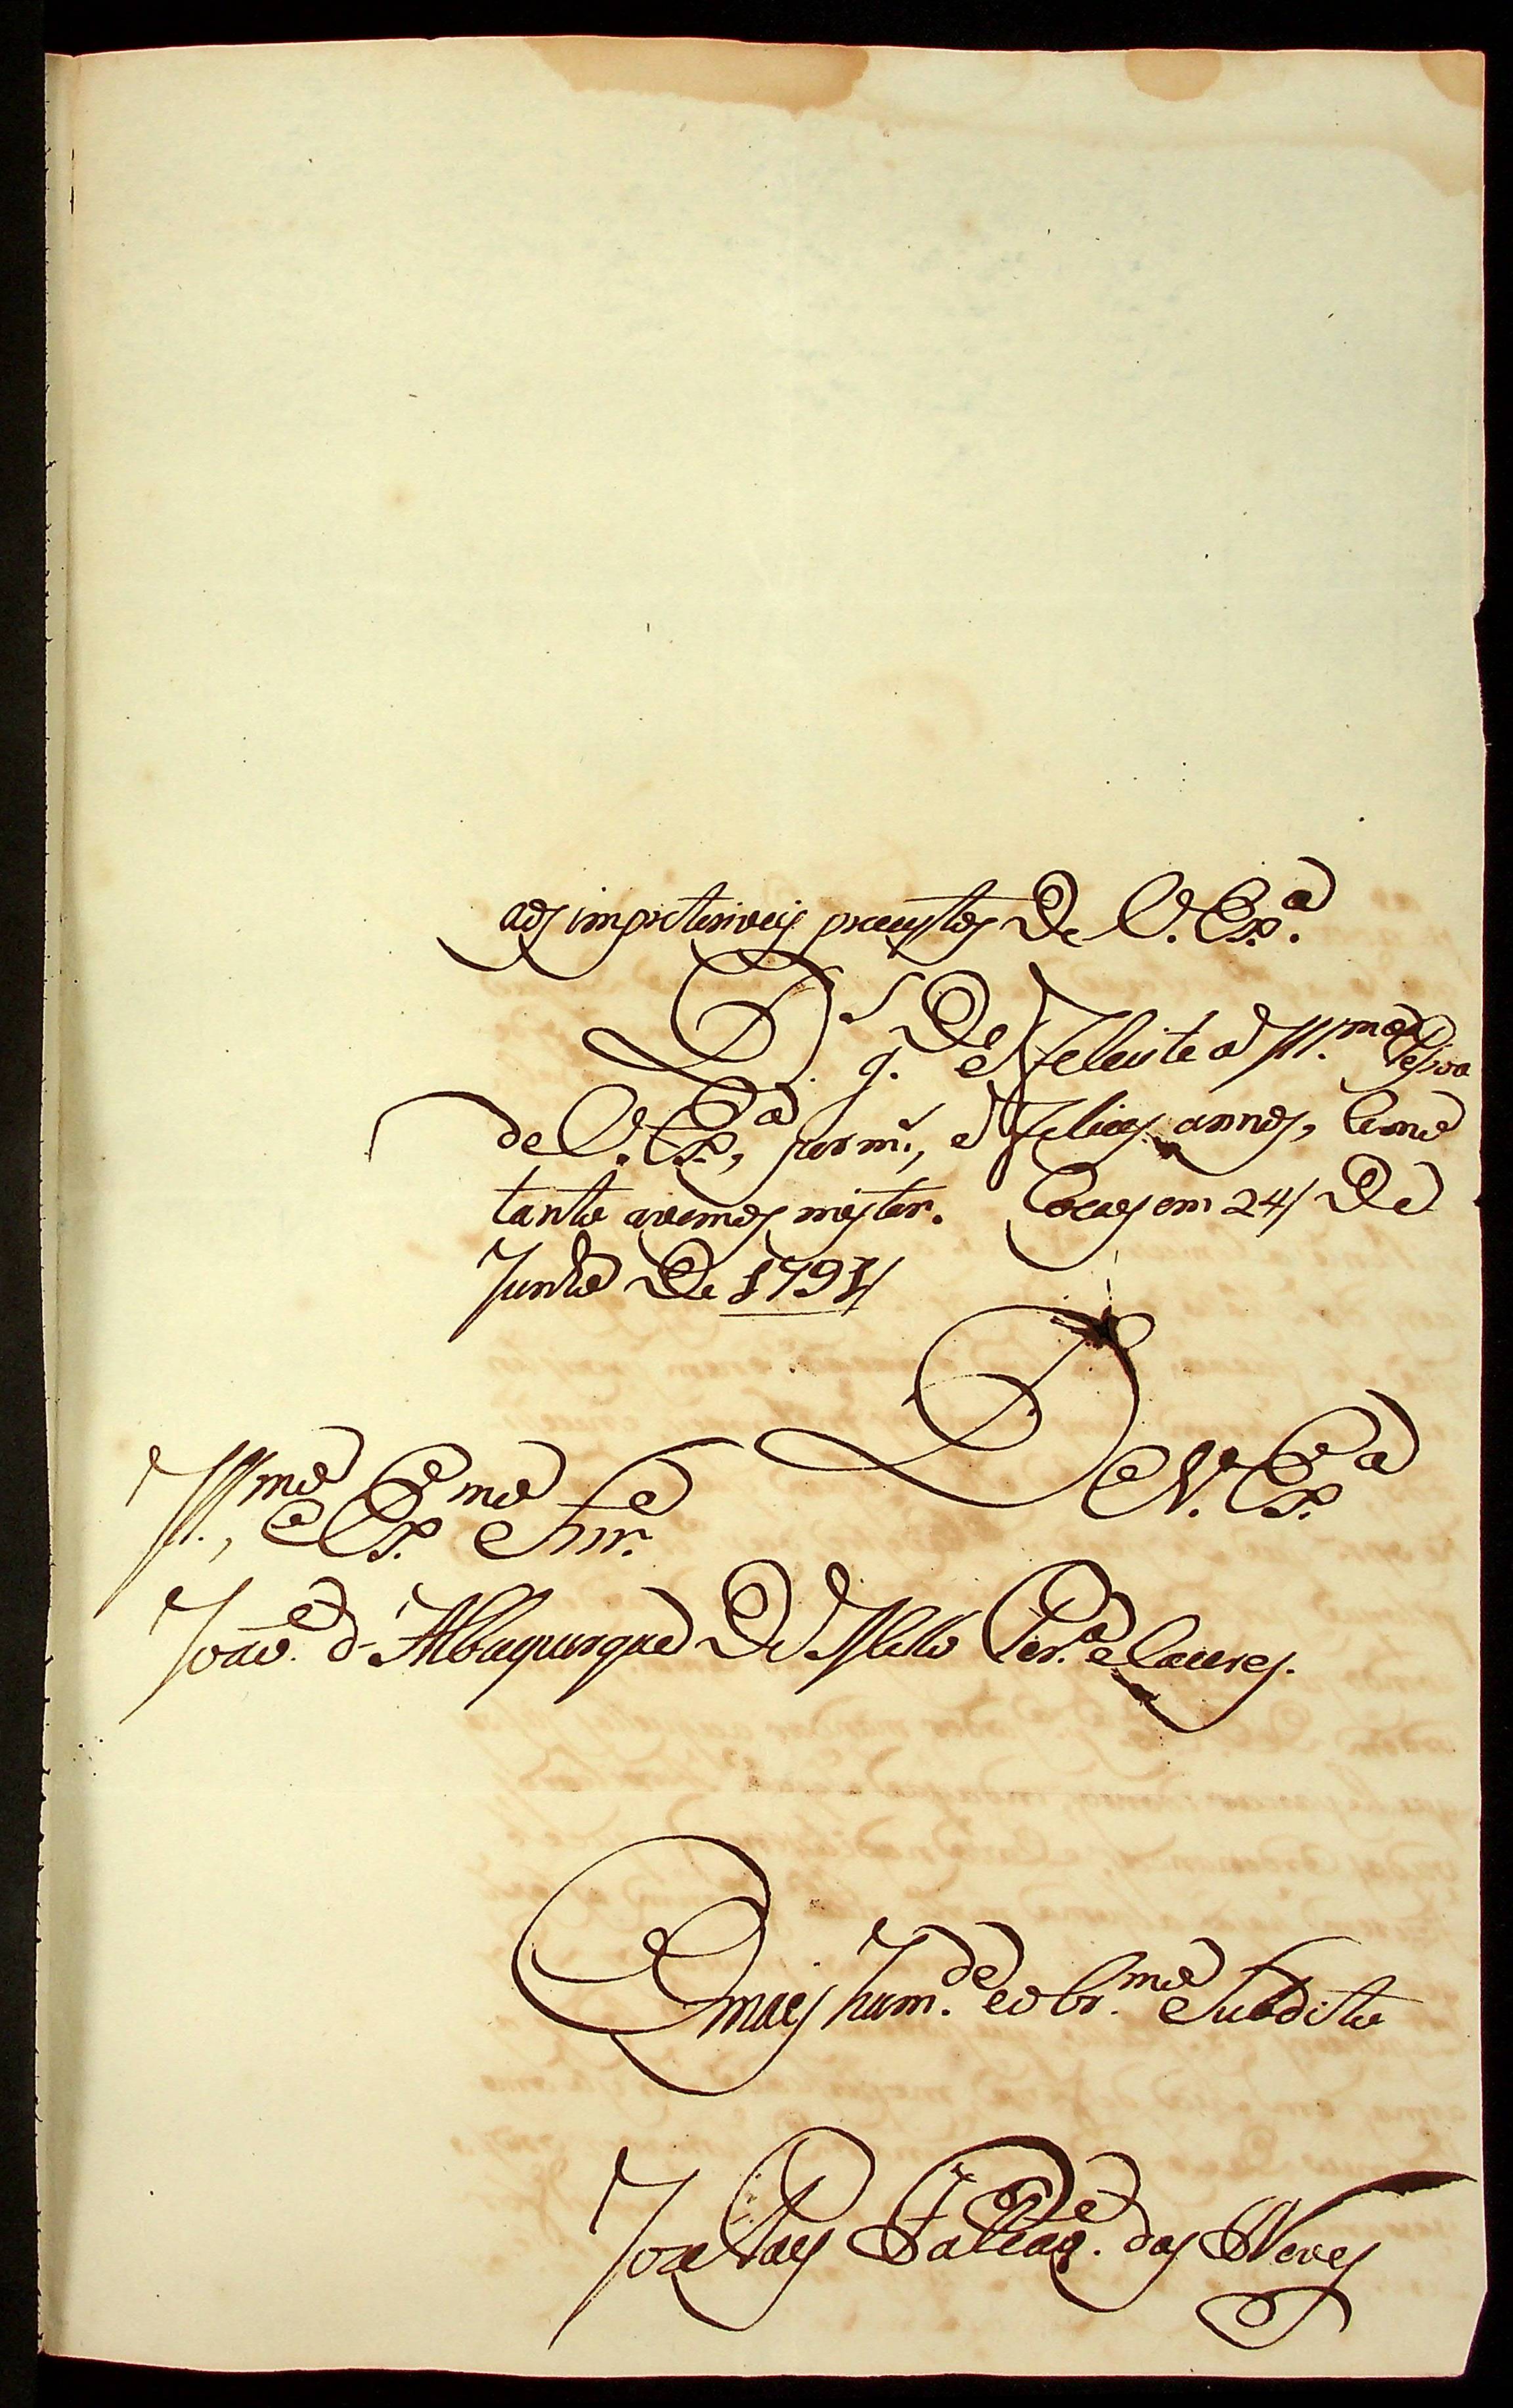 aos impreteriveis preceitos De V. Ex.ª
D.s g.de e Felecite a Ill.ma Pessoa
de V. Ex.ª, por m.s, e Felices annos, Como
tanto avemos mister. Cocaes em 24 De
Junho De 1791
De V. Ex.ª
Ill.mo, e Ex.mo Snr.
João d'Albuquerque De Mello Per.ª e Caceres.
O mais hum.de e obr.mo Subdito
Joze Paes das Neves